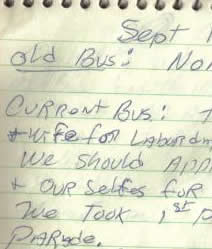 Sept
old Bus: No
CURRENT Bus: T
+ wife for Labour
We should App
+ our selfes for
We Took 1st P
PARade.